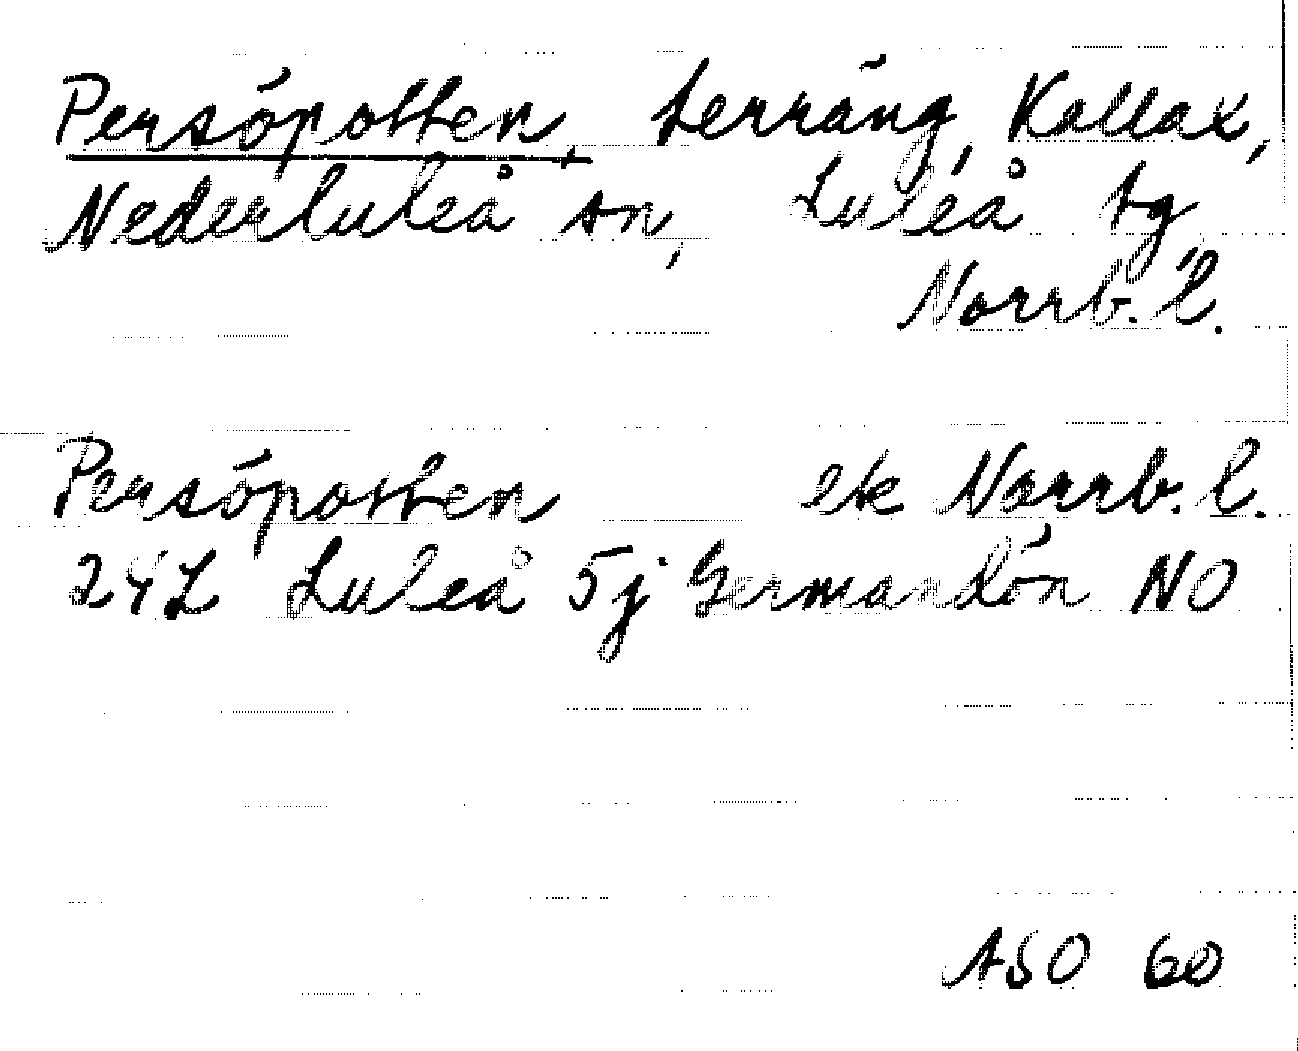 Persöpotten, terräng, Kallax,
Nederluleå sn, Luleå tg
Norrb. l.
Persöpotten ek Norrb. l.
24L Luleå 5j Germandön NO
ASO 60